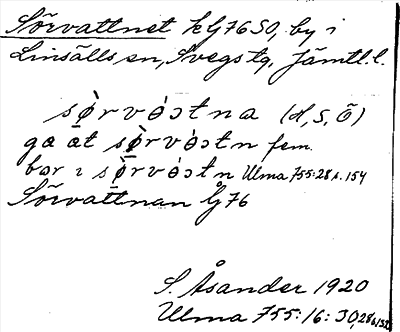 Sörvattnet kG76SO, by i
Linsälls sn, Svegs tg, Jämtl. l.
sø̀rvòtna (d, s, ö)
ga at sø̀rvòtn fem.
bor ı sø̀rvòtn Ulma 755:28 s. 154
Sörvattnan G76
S. Åsander 1920
Ulma 755:16:30,